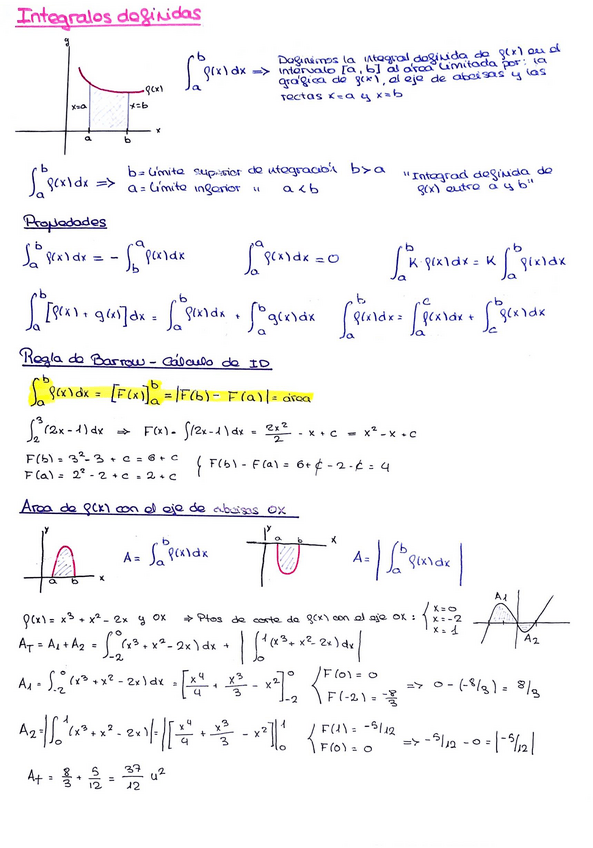 Integrales definidas
y
f(x)
x=a
x=b
a
b
x
∫_a^b f(x) dx => Definimos la integral definida de f(x) en el
intervalo [a, b] al área limitada por: la
gráfica de f(x), el eje de abcisas y las
rectas x=a y x=b
∫_a^b f(x) dx => b = Límite superior de integración b>a
a = Límite inferior " a<b
"Integral definida de
f(x) entre a y b"
Propiedades
∫_a^b f(x) dx = - ∫_b^a f(x) dx
∫_a^a f(x) dx = 0
∫_a^b K·f(x) dx = K ∫_a^b f(x) dx
∫_a^b [f(x) + g(x)] dx = ∫_a^b f(x) dx + ∫_a^b g(x) dx
∫_a^b f(x) dx = ∫_a^c f(x) dx + ∫_c^b f(x) dx
Regla de Barrow - Cálculo de ID
∫_a^b f(x) dx = [F(x)]_a^b = |F(b) - F(a)| = área
∫_2^3 (2x-1) dx => F(x) = ∫(2x-1) dx = 2x²/2 - x + c = x² - x + c
F(b) = 3² - 3 + c = 6 + c
F(a) = 2² - 2 + c = 2 + c
{ F(b) - F(a) = 6 + c - 2 - c = 4
Area de f(x) con el eje de abcisas OX
y
a
b
x
A = ∫_a^b f(x) dx
y
a
b
x
A = | ∫_a^b f(x) dx |
f(x) = x³ + x² - 2x y OX => Ptos de corte de f(x) con el eje OX: { x=0
x=-2
x=1
A1
A2
A_T = A1 + A2 = ∫_-2^0 (x³ + x² - 2x) dx + | ∫_0^1 (x³ + x² - 2x) dx |
A1 = ∫_-2^0 (x³ + x² - 2x) dx = [x⁴/4 + x³/3 - x²]_-2^0 { F(0) = 0
F(-2) = -8/3
=> 0 - (-8/3) = 8/3
A2 = | ∫_0^1 (x³ + x² - 2x) | = | [x⁴/4 + x³/3 - x²] |_0^1 { F(1) = -5/12
F(0) = 0
=> -5/12 - 0 = |-5/12|
A_T = 8/3 + 5/12 = 37/12 u²